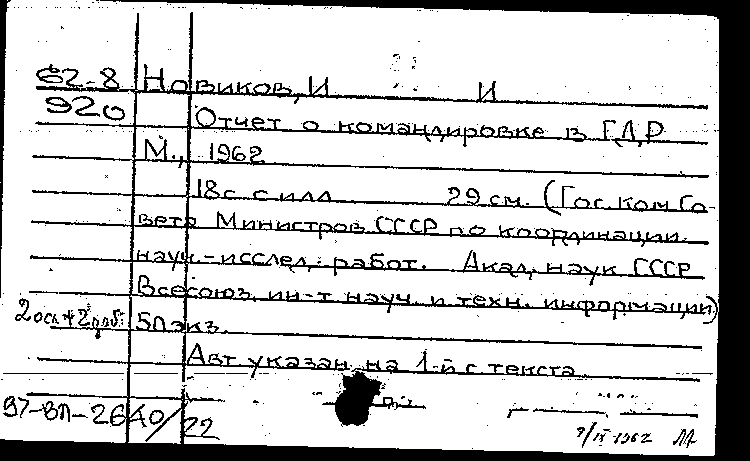 62-8 Новиков, И И
920
Отчет о командировке в Г.Д.Р
М., 1962
18 с. с илл 29 см. (Гос. Ком Со-
вета Министров СССР по координации
науч.-исслед. работ. Акад. наук СССР
Всесоюз. ин-т науч. и техн. информации)
51 экз.
Авт указан на 1-й с текста.
97-ВП-2640/22
9/IV 1962